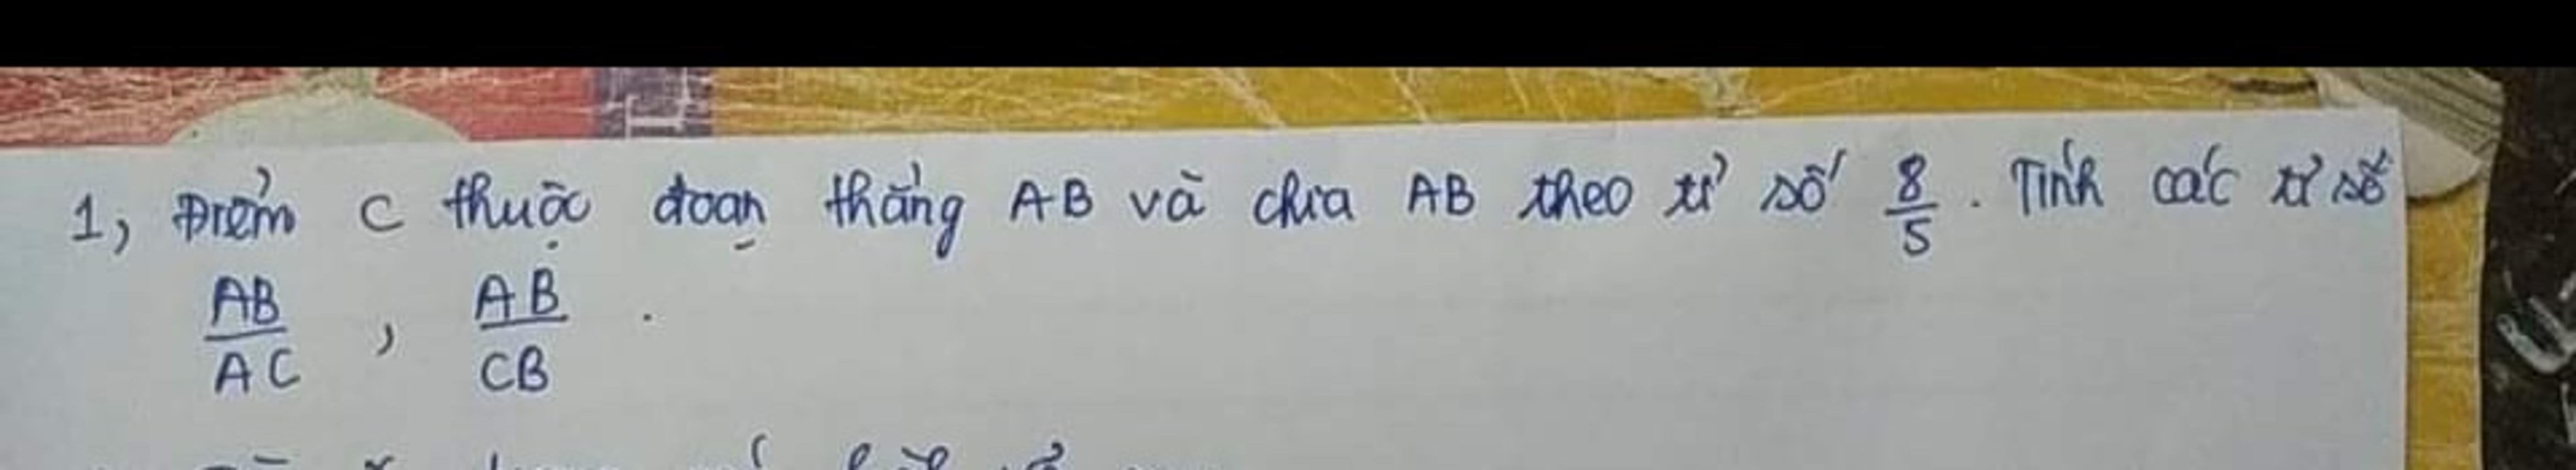 1, Điểm C thuộc đoạn thẳng AB và chia AB theo tỉ số 8/5. Tính các tỉ số
AB/AC, AB/CB.